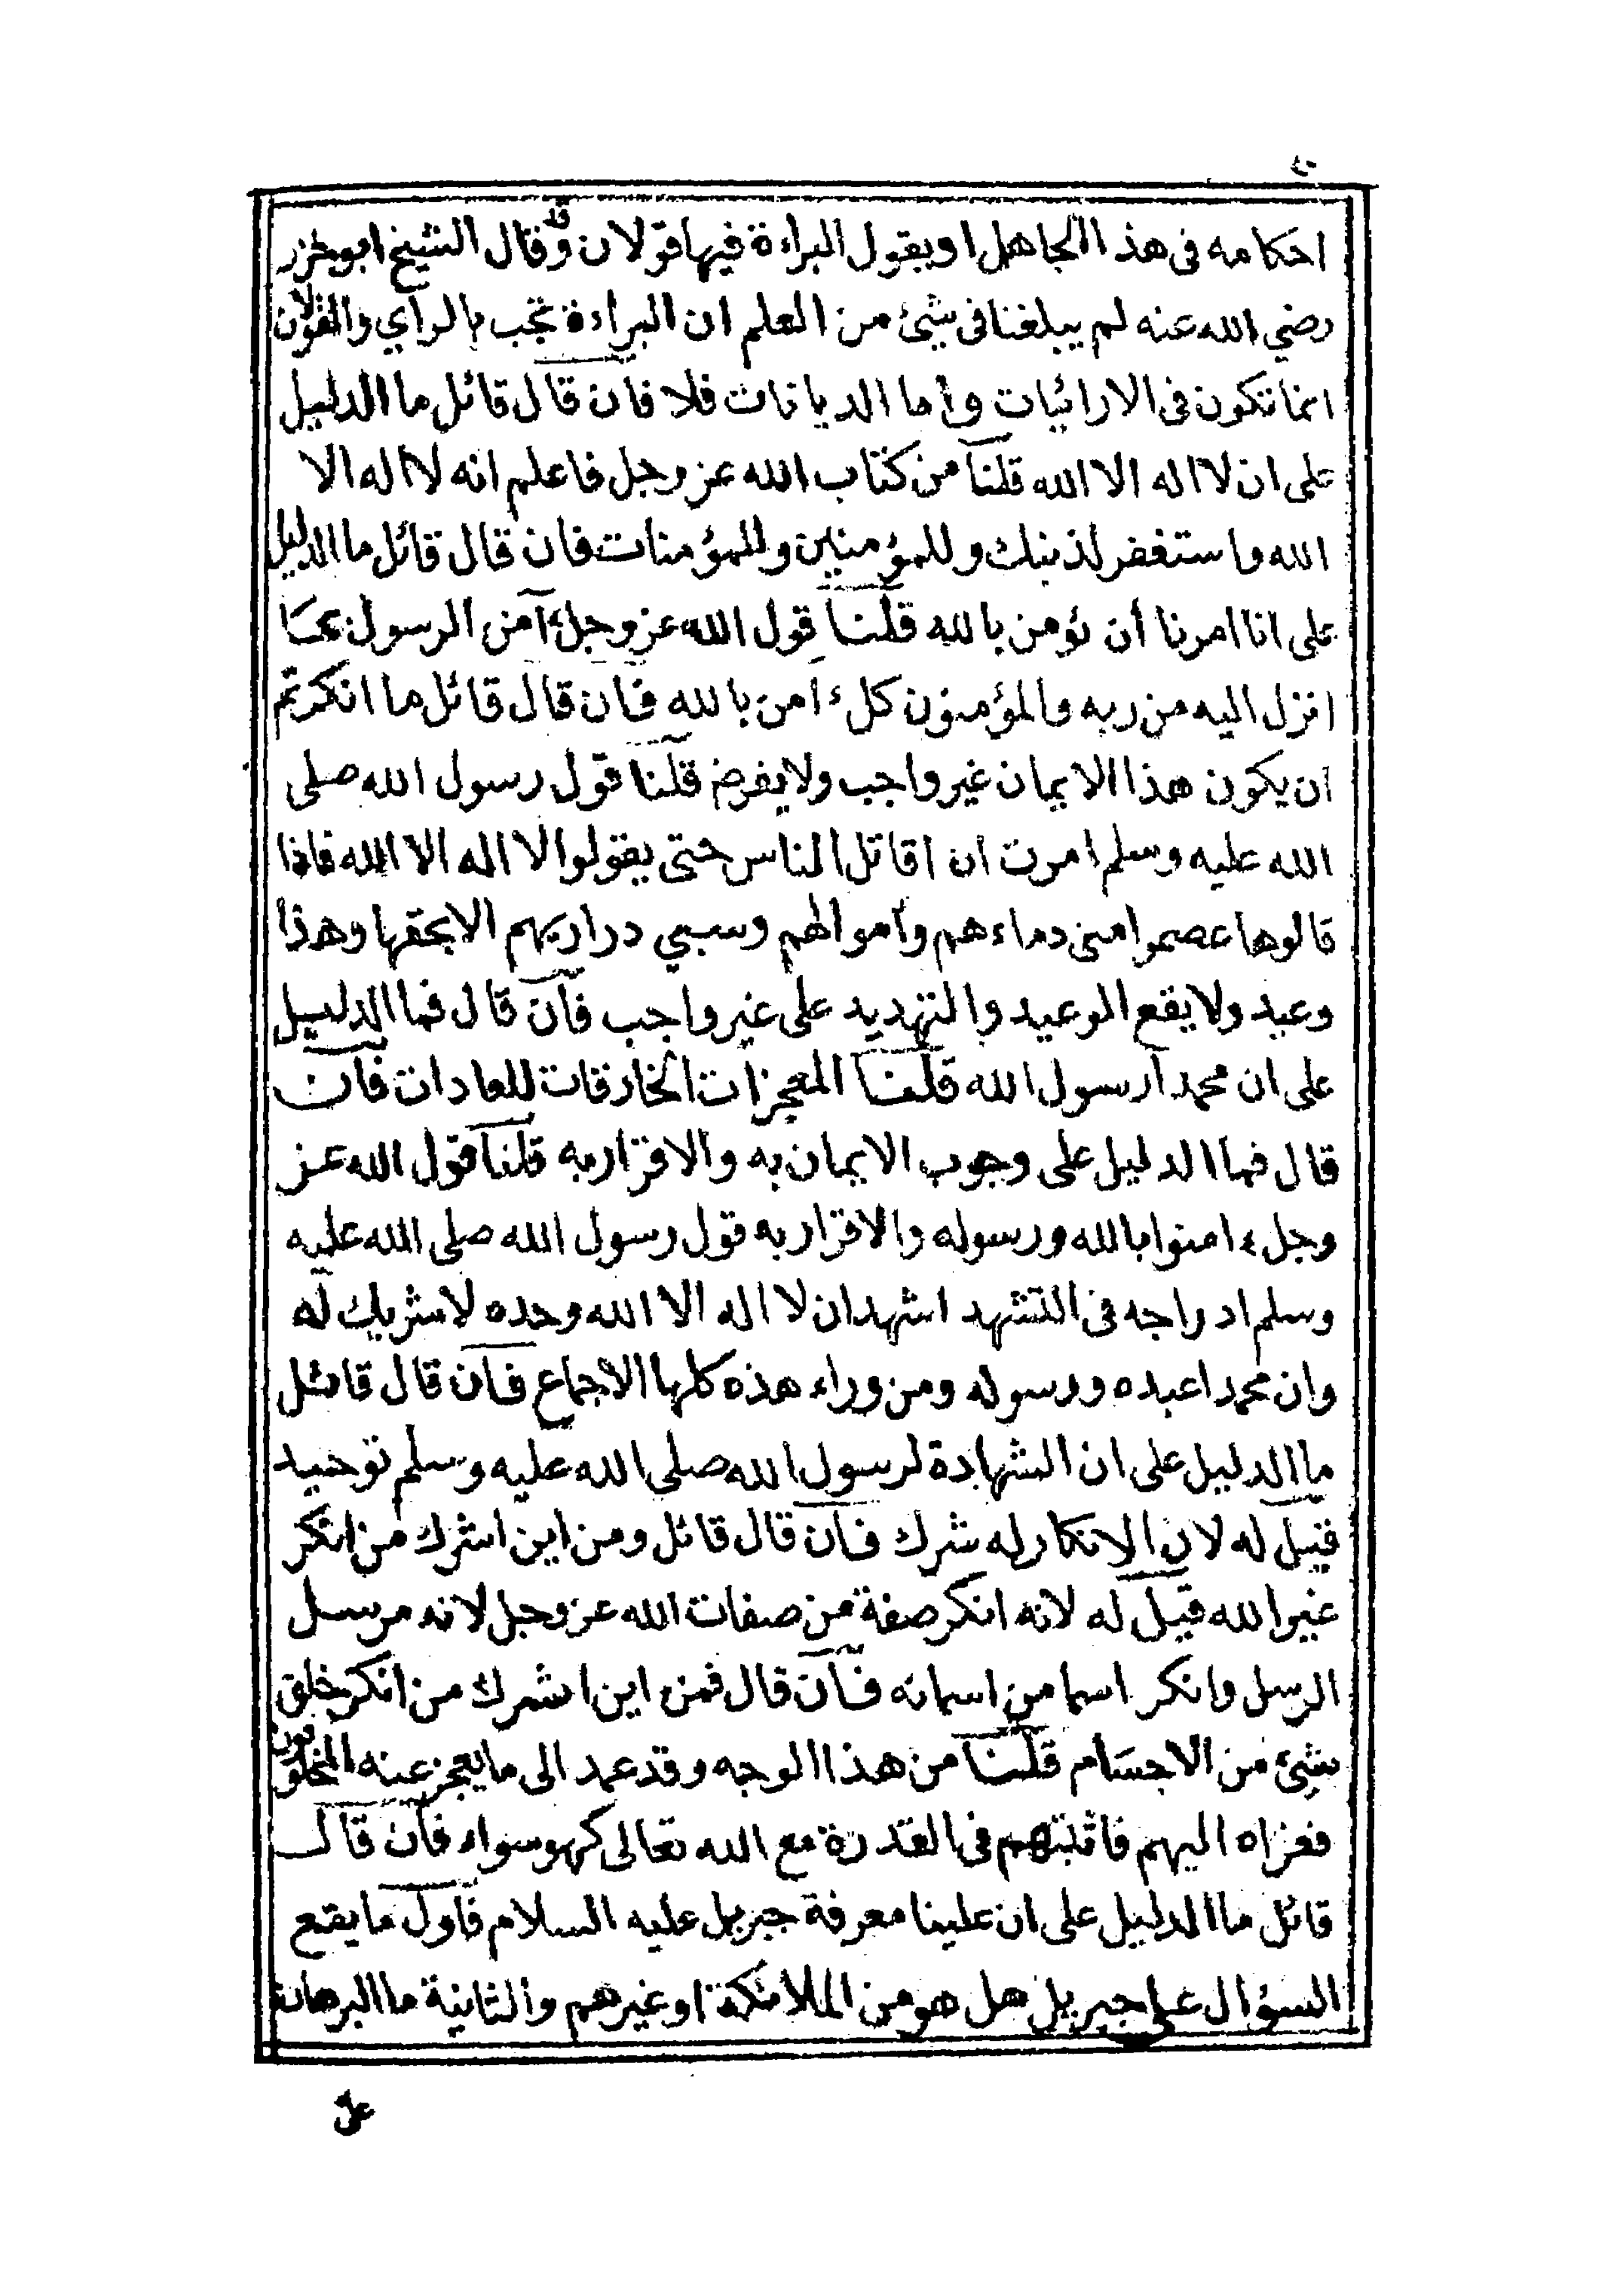 احكامه فى هذا الجاهل او يقول البراءة فيها قولان وقد قال الشيخ ابو خزر
رضي الله عنه لم يبلغنا فى شئ من العلم ان البراءة تجب بالرأي والقولان
انما تكون فى الارائيات واما الديانات فلا فان قال قائل ما الدليل
على ان لا اله الا الله قلنا من كتاب الله عز وجل فاعلم انه لا اله الا
الله واستغفر لذنبك وللمؤمنين وللمؤمنات فان قال قائل ما الدليل
على انا امرنا أن نؤمن بالله قلنا قول الله عز وجل ءامن الرسول بما
انزل اليه من ربه والمؤمنون كل ءامن بالله فان قال قائل ما انكرتم
ان يكون هذا الايمان غير واجب ولا يفرض قلنا قول رسول الله صلى
الله عليه وسلم امرت ان اقاتل الناس حتى يقولوا لا اله الا الله فاذا
قالوها عصموا منى دماءهم وأموالهم وسبي دراريهم الا بحقها وهذا
وعيد ولا يقع الوعيد والتهديد على غير واجب فان قال فما الدليل
على ان محمدا رسول الله قلنا المعجزات الخارقات للعادات فان
قال فما الدليل على وجوب الايمان به والاقرار به قلنا قول الله عز
وجل ءامنوا بالله ورسوله والاقرار به قول رسول الله صلى الله عليه
وسلم ادراجه فى التشهد اشهد ان لا اله الا الله وحده لا شريك له
وان محمدا عبده ورسوله ومن وراء هذه كلها الاجماع فان قال قائل
ما الدليل على ان الشهادة لرسول الله صلى الله عليه وسلم توحيد
قيل له لان الانكار له شرك فان قال قائل ومن اين اشرك من انكر
غير الله قيل له لانه انكر صفة من صفات الله عز وجل لانه مرسل
الرسل وانكر اسما من اسمائه فان قال فمن اين اشرك من انكر خلق
شئ من الاجسام قلنا من هذا الوجه وقد عمد الى ما يعجز عنه المخلوقون
فعزاه اليهم فاثبتهم فى القدرة مع الله تعالى كهو سواء فان قال
قائل ما الدليل على ان علينا معرفة جبريل عليه السلام فاول ما يقع
السؤال على جبريل هل هو من الملائكة او غيرهم والثانية ما البرهان
على